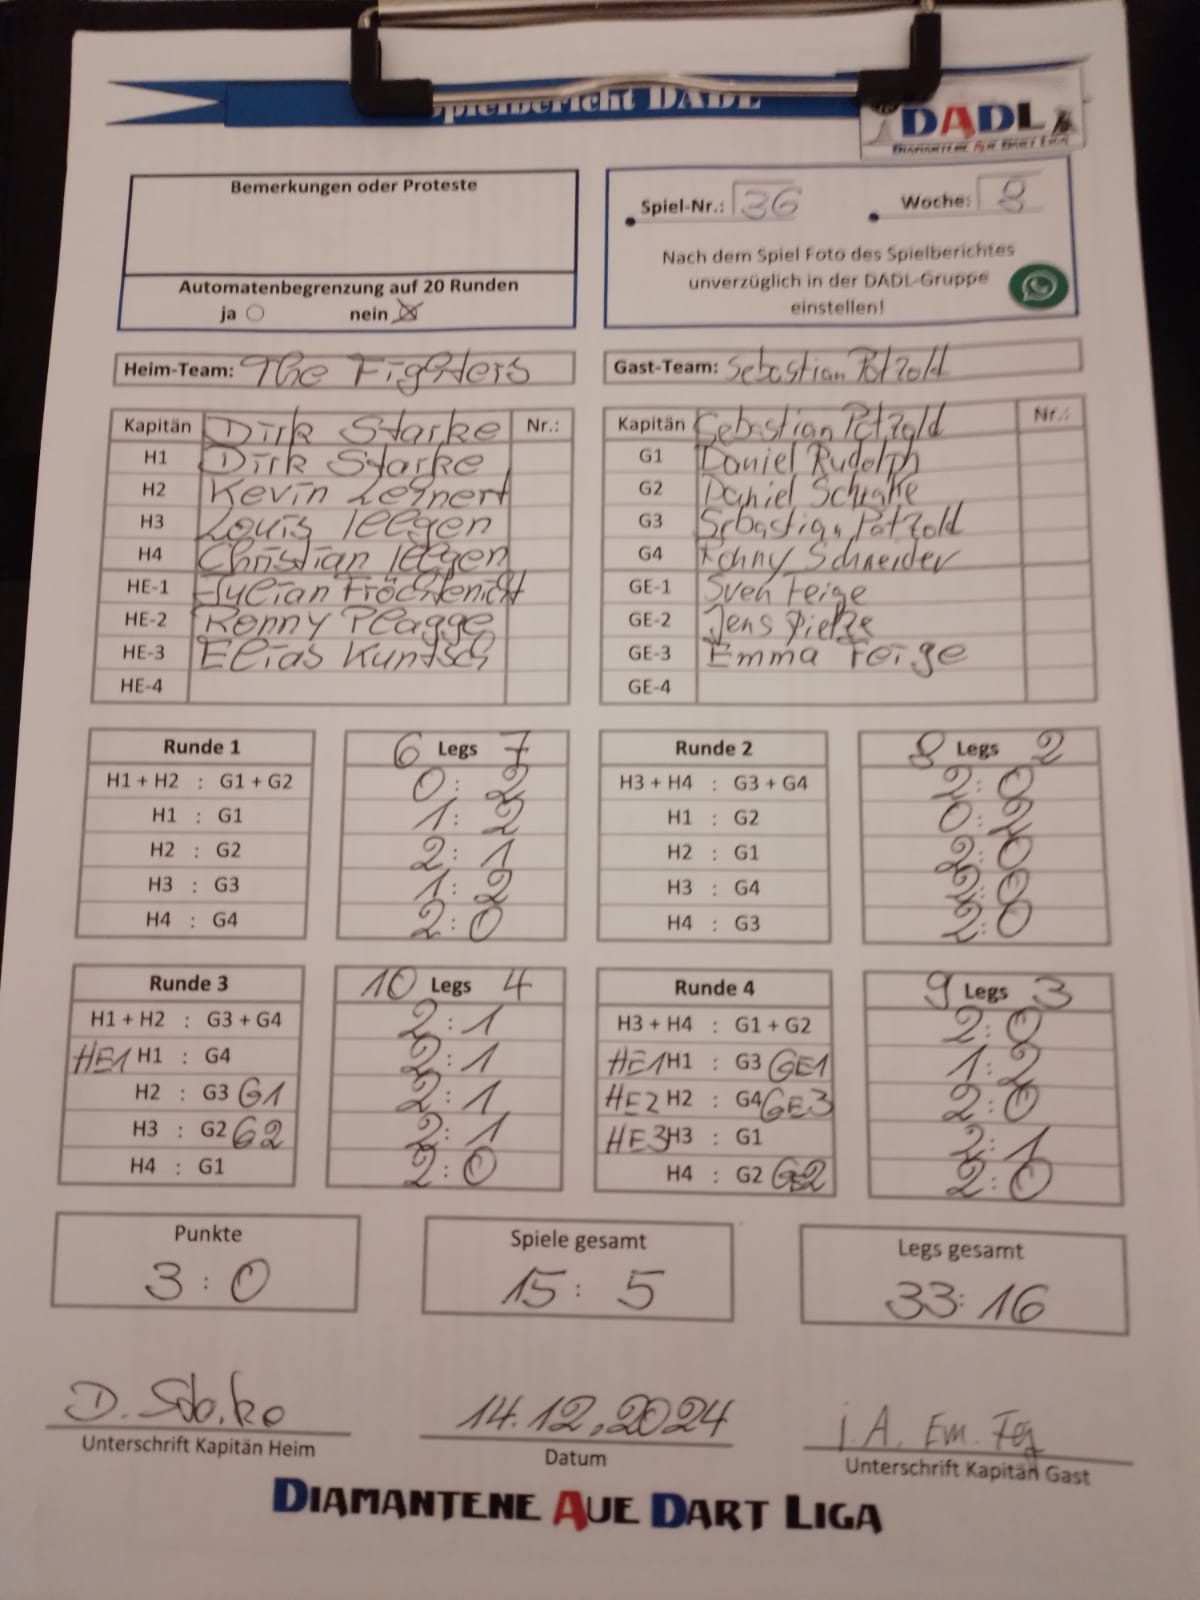 Spielbericht DADL
DADL
DIAMANTENE AUE DART LIGA
Bemerkungen oder Proteste
Automatenbegrenzung auf 20 Runden
ja nein
Spiel-Nr.: 36 Woche: 8
Nach dem Spiel Foto des Spielberichtes
unverzüglich in der DADL-Gruppe
einstellen!
Heim-Team: The Fighters
Kapitän Dirk Starke Nr.:
H1 Dirk Starke
H2 Kevin Leinert
H3 Louis Jeegen
H4 Christian Jeegen
HE-1 Julian Fröchtenicht
HE-2 Ronny Plagge
HE-3 Elias Kuntsch
HE-4
Gast-Team: Sebastian Pätzold
Kapitän Sebastian Pätzold Nr.:
G1 Daniel Rudolph
G2 Daniel Schrake
G3 Sebastian Pätzold
G4 Ronny Schneider
GE-1 Sven Feige
GE-2 Jens
GE-3 Emma Feige
GE-4
Runde 1 6 Legs 7
H1 + H2 : G1 + G2 0 : 2
H1 : G1 1 : 2
H2 : G2 2 : 1
H3 : G3 1 : 2
H4 : G4 2 : 0
Runde 2 8 Legs 2
H3 + H4 : G3 + G4 2 : 0
H1 : G2 0 : 2
H2 : G1 2 : 0
H3 : G4 2 : 0
H4 : G3 2 : 0
Runde 3 10 Legs 4
H1 + H2 : G3 + G4 2 : 1
HE1 H1 : G4 2 : 1
H2 : G3 G1 2 : 1
H3 : G2 G2 2 : 1
H4 : G1 2 : 0
Runde 4 9 Legs 3
H3 + H4 : G1 + G2 2 : 0
HE1 H1 : G3 GE1 1 : 2
HE2 H2 : G4 GE3 2 : 0
HE3 H3 : G1 2 : 1
H4 : G2 2 : 0
Punkte
3 : 0
Spiele gesamt
15 : 5
Legs gesamt
33 : 16
D. Starke
Unterschrift Kapitän Heim
14.12.2024
Datum
i.A. Em. Fej
Unterschrift Kapitän Gast
DIAMANTENE AUE DART LIGA